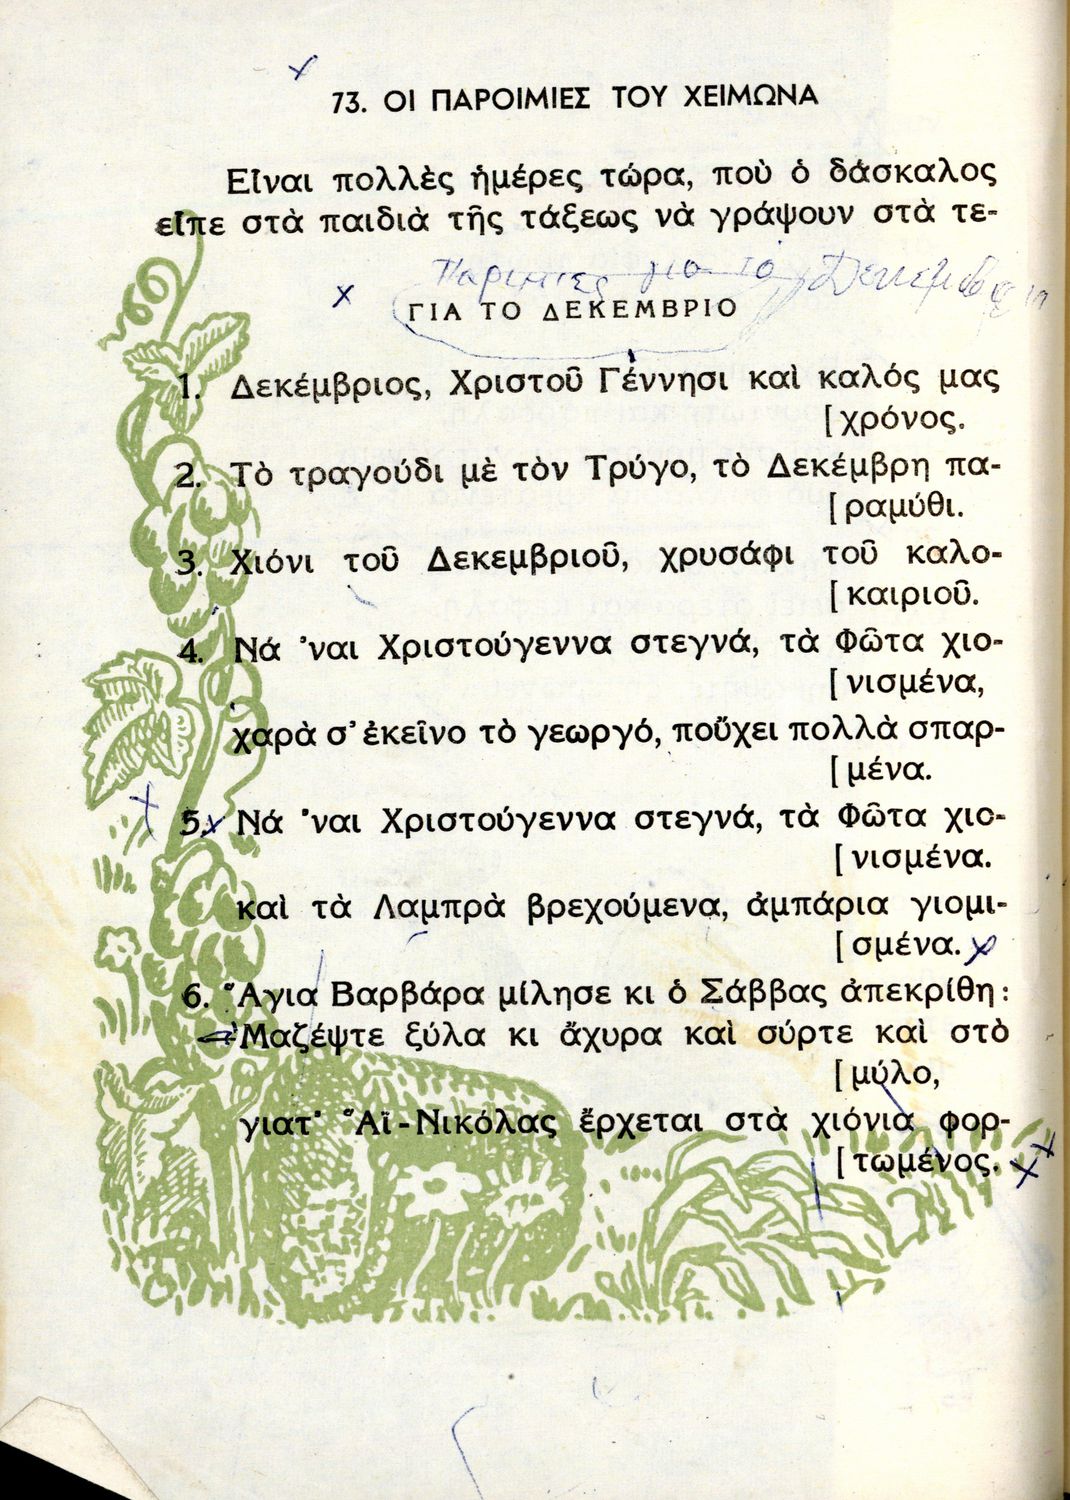 73. ΟΙ ΠΑΡΟΙΜΙΕΣ ΤΟΥ ΧΕΙΜΩΝΑ
Εἶναι πολλὲς ἡμέρες τώρα, ποὺ ὁ δάσκαλος
εἶπε στὰ παιδιὰ τῆς τάξεως νὰ γράψουν στὰ τε-
Παριμιες για το Δεκεμβριο
ΓΙΑ ΤΟ ΔΕΚΕΜΒΡΙΟ
1. Δεκέμβριος, Χριστοῦ Γέννησι καὶ καλός μας
[χρόνος.
2. Τὸ τραγούδι μὲ τὸν Τρύγο, τὸ Δεκέμβρη πα-
[ραμύθι.
3. Χιόνι τοῦ Δεκεμβριοῦ, χρυσάφι τοῦ καλο-
[καιριοῦ.
4. Νά 'ναι Χριστούγεννα στεγνά, τὰ Φῶτα χιο-
[νισμένα,
χαρὰ σ' ἐκεῖνο τὸ γεωργό, ποὔχει πολλὰ σπαρ-
[μένα.
5. Νά 'ναι Χριστούγεννα στεγνά, τὰ Φῶτα χιο-
[νισμένα.
καὶ τὰ Λαμπρὰ βρεχούμενα, ἀμπάρια γιομι-
[σμένα.
6. Ἅγια Βαρβάρα μίλησε κι ὁ Σάββας ἀπεκρίθη:
Μαζέψτε ξύλα κι ἄχυρα καὶ σύρτε καὶ στὸ
[μύλο,
γιατ' Ἅϊ-Νικόλας ἔρχεται στὰ χιόνια φορ-
[τωμένος.